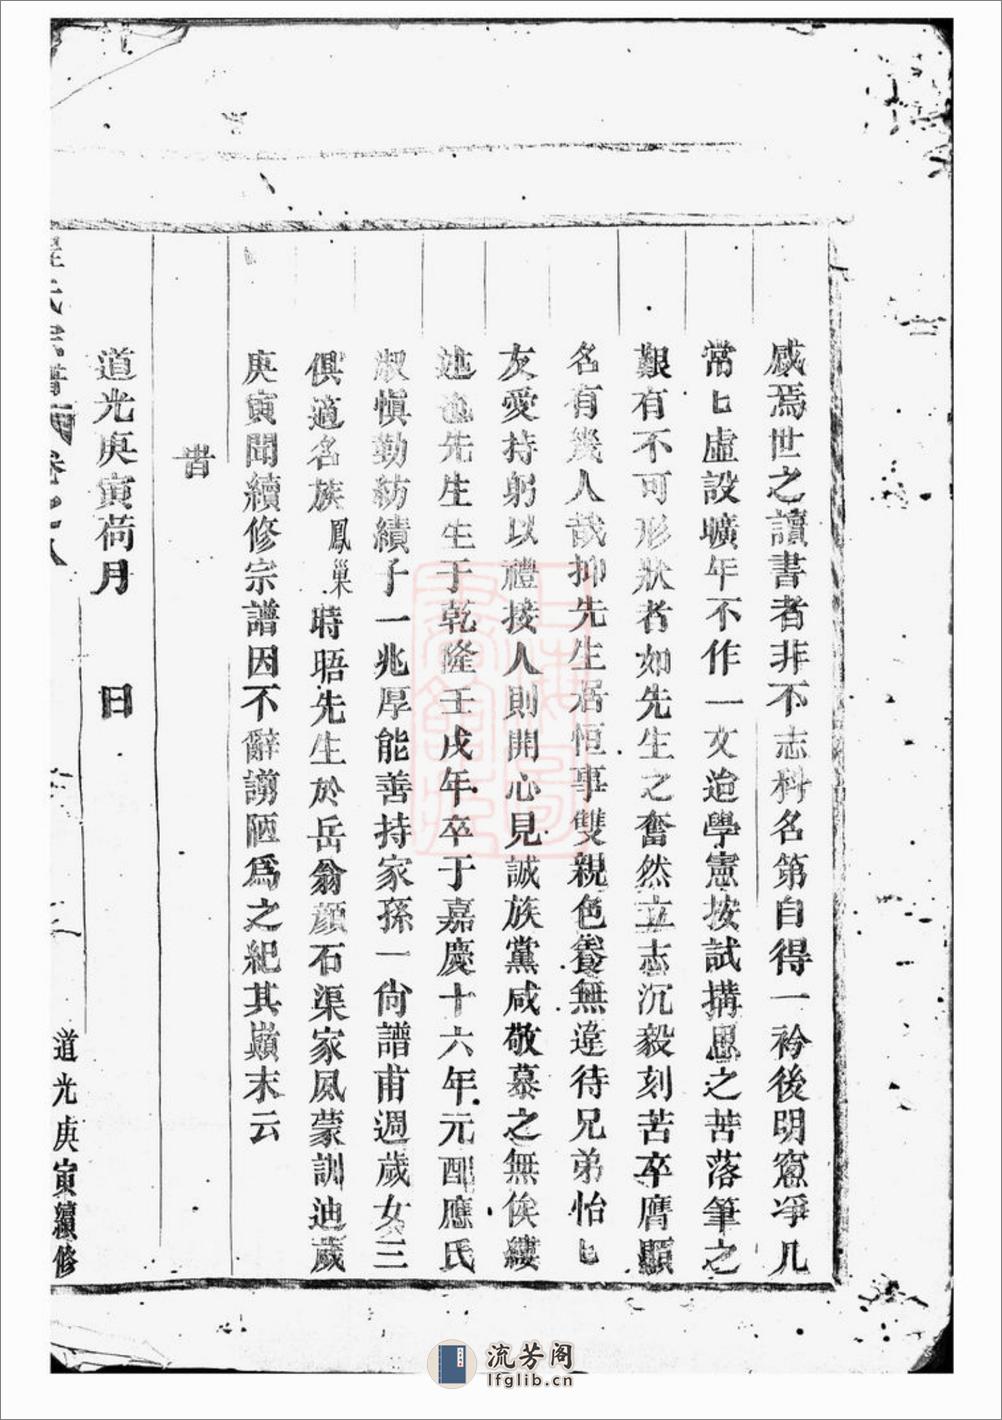 感焉世之讀書者非不志科名第自得一衿後明窓凈几
常匕虛設曠年不作一文迨學憲按試搆思之苦落筆之
艱有不可形狀者如先生之奮然立志沉毅刻苦卒膺顯
名有幾人哉抑先生居恒事雙親色養無違待兄弟怡匕
友愛持躬以禮接人則開心見誠族黨咸敬慕之無俟縷
述也先生生于乾隆壬戌年卒于嘉慶十六年元配應氏
淑慎勤紡績子一兆厚能善持家孫一尙譜甫週歲女三
俱適名族鳳巢時晤先生於岳翁顏石渠家夙蒙訓迪歲
庚寅聞續修宗譜因不辭謭陋爲之紀其巔末云
旹
道光庚寅荷月　日
氏宗譜 卷之八
道光庚寅續修
流芳阁
lfglib.cn